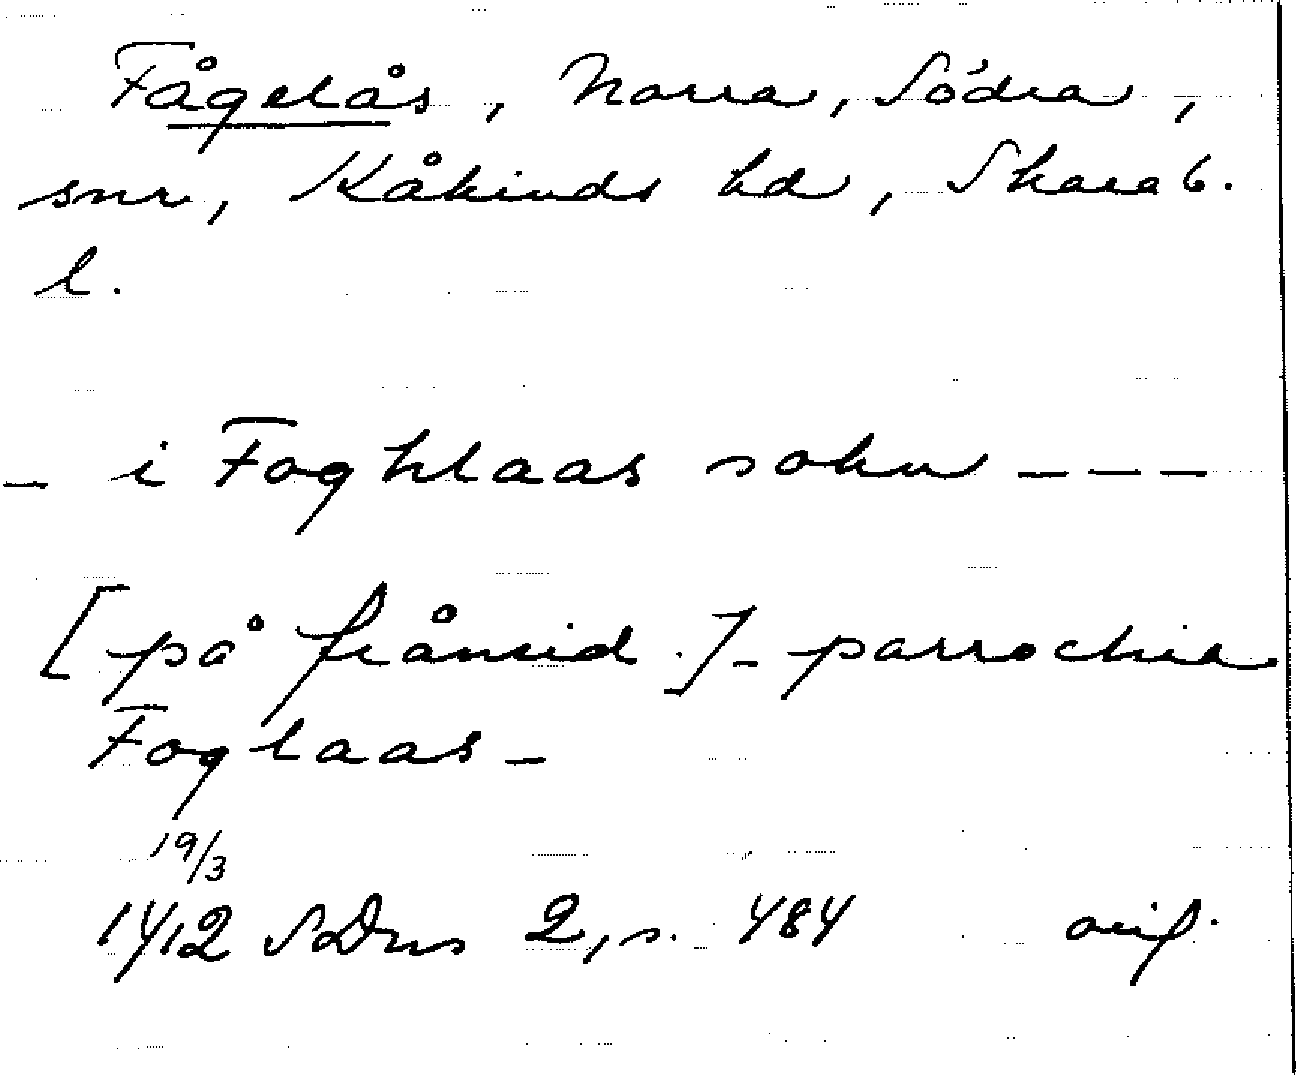 Fågelås, Norra, Södra,
snr, Kåkinds hd, Skarab.
l.
- i Foghlaas sokn ---
[på frånsid.]- parrochia
Foglaas -
19/3
1412 SDns 2, s. 484 orig.